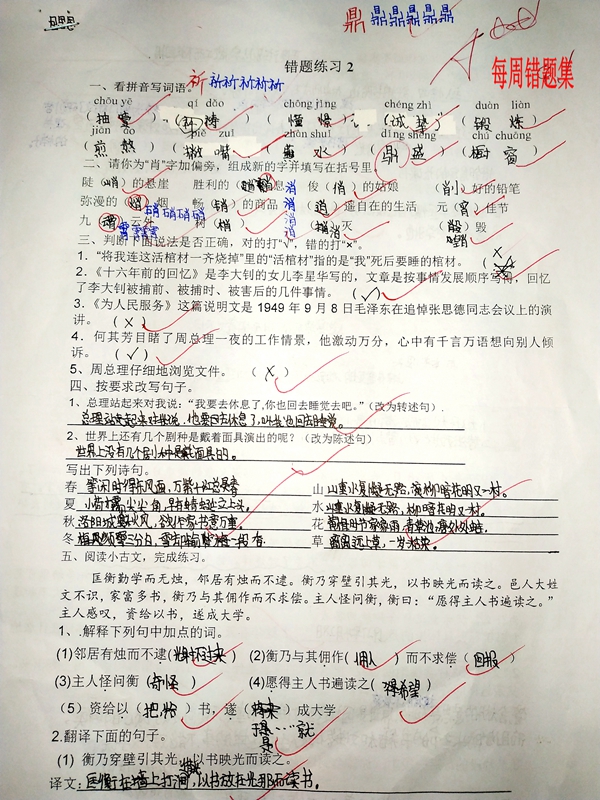 鼎 鼎鼎鼎鼎鼎
每周错题集
错题练习2
一、看拼音写词语。 祈 祈祈祈祈祈
chōu yē qí dǎo chōng jǐng chéng zhì duàn liàn
（抽噎）（祷）（憧憬）（诚挚）（锻炼）
jiān áo piě zuǐ zhàn shuǐ dǐng shèng chú chuāng
（煎熬）（撇嘴）（水）（盛）（橱窗）
二、请你为“肖”字加偏旁，组成新的字并填写在括号里。
陡（峭）的悬崖 胜利的（）息 消 俊（俏）的姑娘 （削）好的铅笔
弥漫的（硝）烟 畅（销）的商品 消 （逍）遥自在的生活 元（宵）佳节
九（霄）云外 树（梢） 消 （消）灭 （销）毁
硝硝硝硝
霄霄霄霄
三、判断下面说法是否正确，对的打“√”，错的打“×”。
1．“将我连这活棺材一齐烧掉”里的“活棺材”指的是“我”死后要睡的棺材。（×
2．《十六年前的回忆》是李大钊的女儿李星华写的，文章是按事情发展顺序写的，回忆
了李大钊被捕前、被捕时、被害后的几件事情。（√）
3．《为人民服务》这篇说明文是 1949 年 9 月 8 日毛泽东在追悼张思德同志会议上的演
讲。（×）
4．何其芳目睹了周总理一夜的工作情景，他激动万分，心中有千言万语想向别人倾
诉。（√）
5、周总理仔细地浏览文件。（×）
四、按要求改写句子。
1、总理站起来对我说：“我要去休息了，你也回去睡觉去吧。”（改为转述句）
总理站起来对我说，他要去休息了，叫我也回去睡觉。
2、世界上还有几个剧种是戴着面具演出的呢？（改为陈述句）
世界上没有几个剧种是戴面具的。
写出下列诗句。
春 等闲识得东风面，万紫千红总是春 山 山重水复疑无路，柳暗花明又一村。
夏 小荷才露尖尖角，早有蜻蜓立上头。 水 山重水复疑无路，柳暗花明又一村。
秋 洛阳城里见秋风，欲作家书意万重。 花
冬 梅须逊雪三分白，雪却输梅一段香 草 离离原上草，一岁一枯荣。
五、阅读小古文，完成练习。
匡衡勤学而无烛，邻居有烛而不逮。衡乃穿壁引其光，以书映光而读之。邑人大姓
文不识，家富多书，衡乃与其佣作而不求偿。主人怪问衡，衡曰：“愿得主人书遍读之。”
主人感叹，资给以书，遂成大学。
1、.解释下列句中加点的词。
(1)邻居有烛而不逮（过来） (2)衡乃与其佣作（佣人）而不求偿（回报）
(3)主人怪问衡（奇怪） (4)愿得主人书遍读之（得希望）
（5）资给以（把）书，遂（）成大学
就
2.翻译下面的句子。
(1) 衡乃穿壁引其光，以书映光而读之。
译文：匡衡在墙上打洞，以书放在光那而读书。